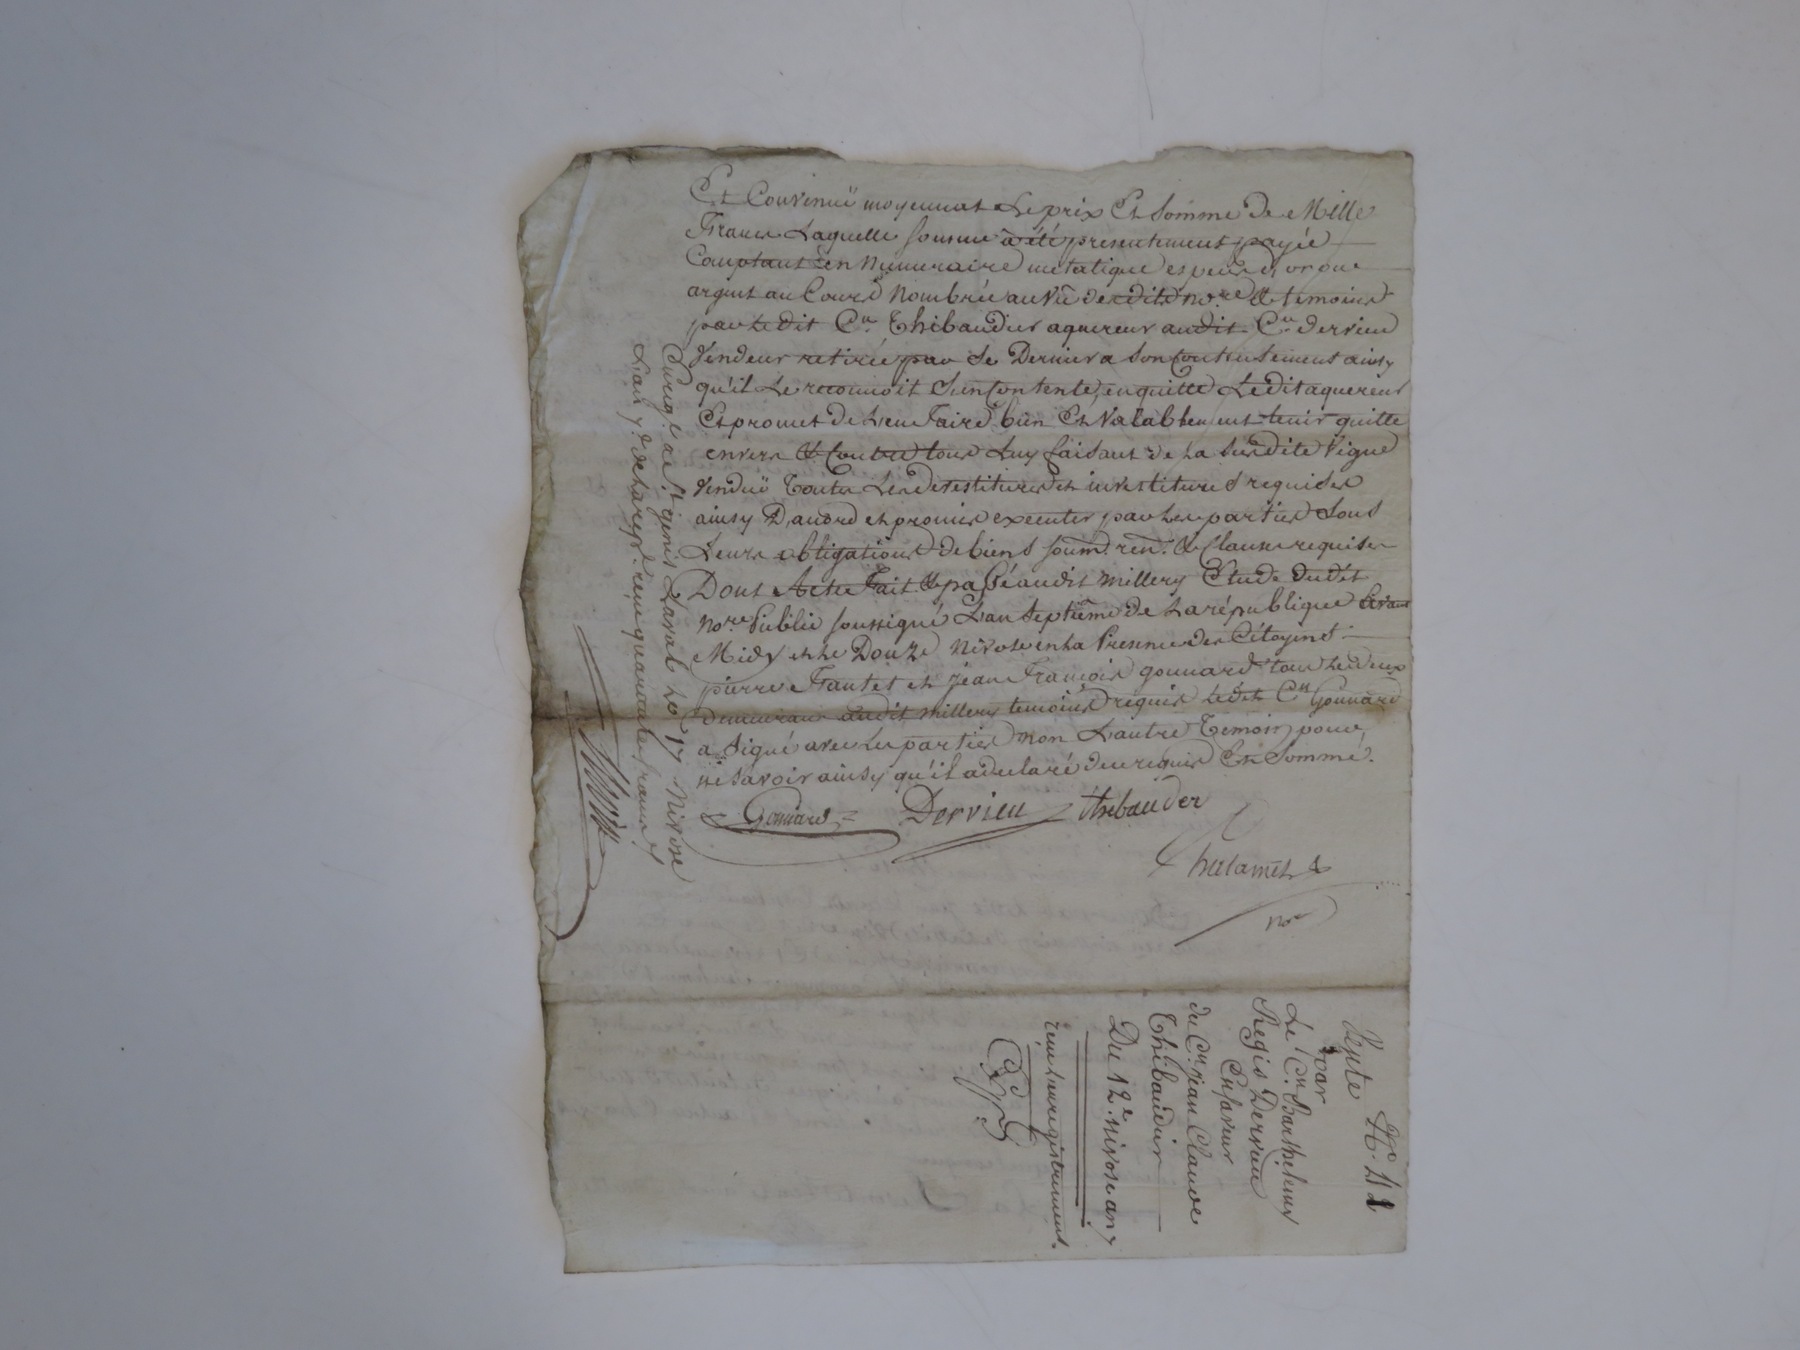 Et Convenuë moyennat Le prix Et Somme De Mille
Francs Laquelle somme a été presentement payée
Comptant En Numeraire métalique especes d'or ou
argent au Cours Nombrée au Vû desdits no.re & temoins
par Le dit C.n Thibaudier aquereur audit C.n derrieu
Vendeur retirée par Se Dernier a Son Contentement ainsy
qu'il Le reconnoit S'en Contente, en quitte Ledit aquereur
Et promet de L'en Faire bien Et Valablement tenir quitte
envers & Contre tous Luy faisant de La Susdite Vigne
Venduë Toutes Les devestitures et investitures requises
ainsy D'acord et promis executer par Les parties Sous
Leurs obligations de biens soum. ren. & Clauses requises
Dont Acte Fait & passé audit millery Etude dudit
No.re Public soussigné L'an Septième de La république avant
Midy et Le Douze Nivose en La Presence des Citoyens
pierre Fautet et jean François gonnard tous Les deux
Demeurans audit millery temoins requis Ledit C.n Gonnard
a Signé avec Les parties non L'autre Temoin pour
ne Savoir ainsy qu'il a declaré de ce requis Et Sommé.
Gonnard Derrieu thibaudier
Chalamet
no.re
Enreg.é a S.t genis Laval Le 17 Nivose
L'an 7.e de La rep.e reçu quarante francs
Vente N.o 41
par
Le C.n Barthelemy
Regis Derrieu
En faveur
du C.n jean Claude
Thibaudier
Du 12.e nivose an 7